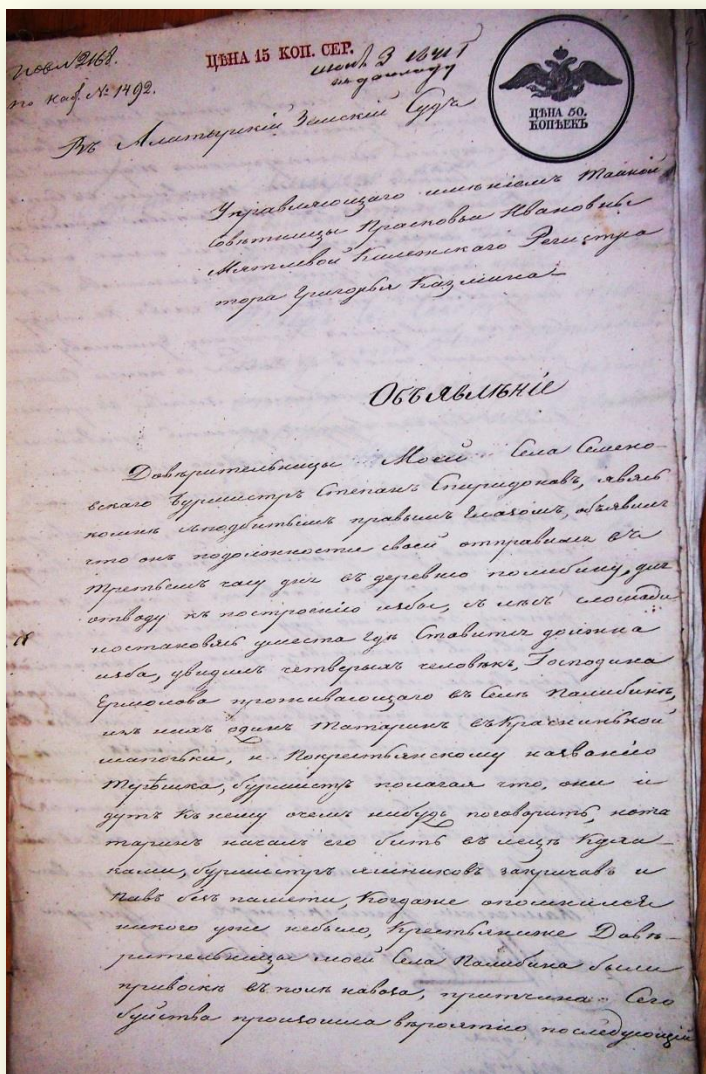 пов №2168.
по каф. № 1492.
ЦѢНА 15 КОП. СЕР.
июня 3 1841 г
по докладу
ЦѢНА 50.
КОПѢЕКЪ
Въ Алатырскій Земскій Судъ
Управляющаго имѣніемъ тайной
Совѣтницы Прасковьи Ивановны
Мятлевой Колежскаго Регистра
тора Григорья Казмина
Объявлѣніе
Довѣрительницы Моей Села Семено-
вскаго Бурмистръ Степанъ Спиридоновъ, явясь
комнѣ съподбитымъ правымъ глазомъ, объявилъ
что онъ подолжности своей отправился въ
третьемъ часу дня въ деревню полибину, для
отводу къ построенію избы, слѣзъ слошади
постановясь уместа гдѣ Ставить должна
изба, увидилъ четверыхъ человѣкъ, Господина
Ермолова проживающаго въ Селѣ Полибинѣ,
изъ нихъ одинъ татаринъ въ Красинькой
шапочки, и Покрестьянскому названію
бурмистръ полагая что, они и
дутъ Къ нему очемъ нибудь поговорить, ната
таринъ началъ его бить въ лецѣ Кула-
ками, бурмистръ закричавъ и
палъ безъ памети, Когдаже опомнился
никого уже небыло, Крестьянеже Довѣ-
рительницы моей Села Полибина были
привоскѣ въ полѣ навоза, притчина Сего
буйства произошла вѣроятно последующій